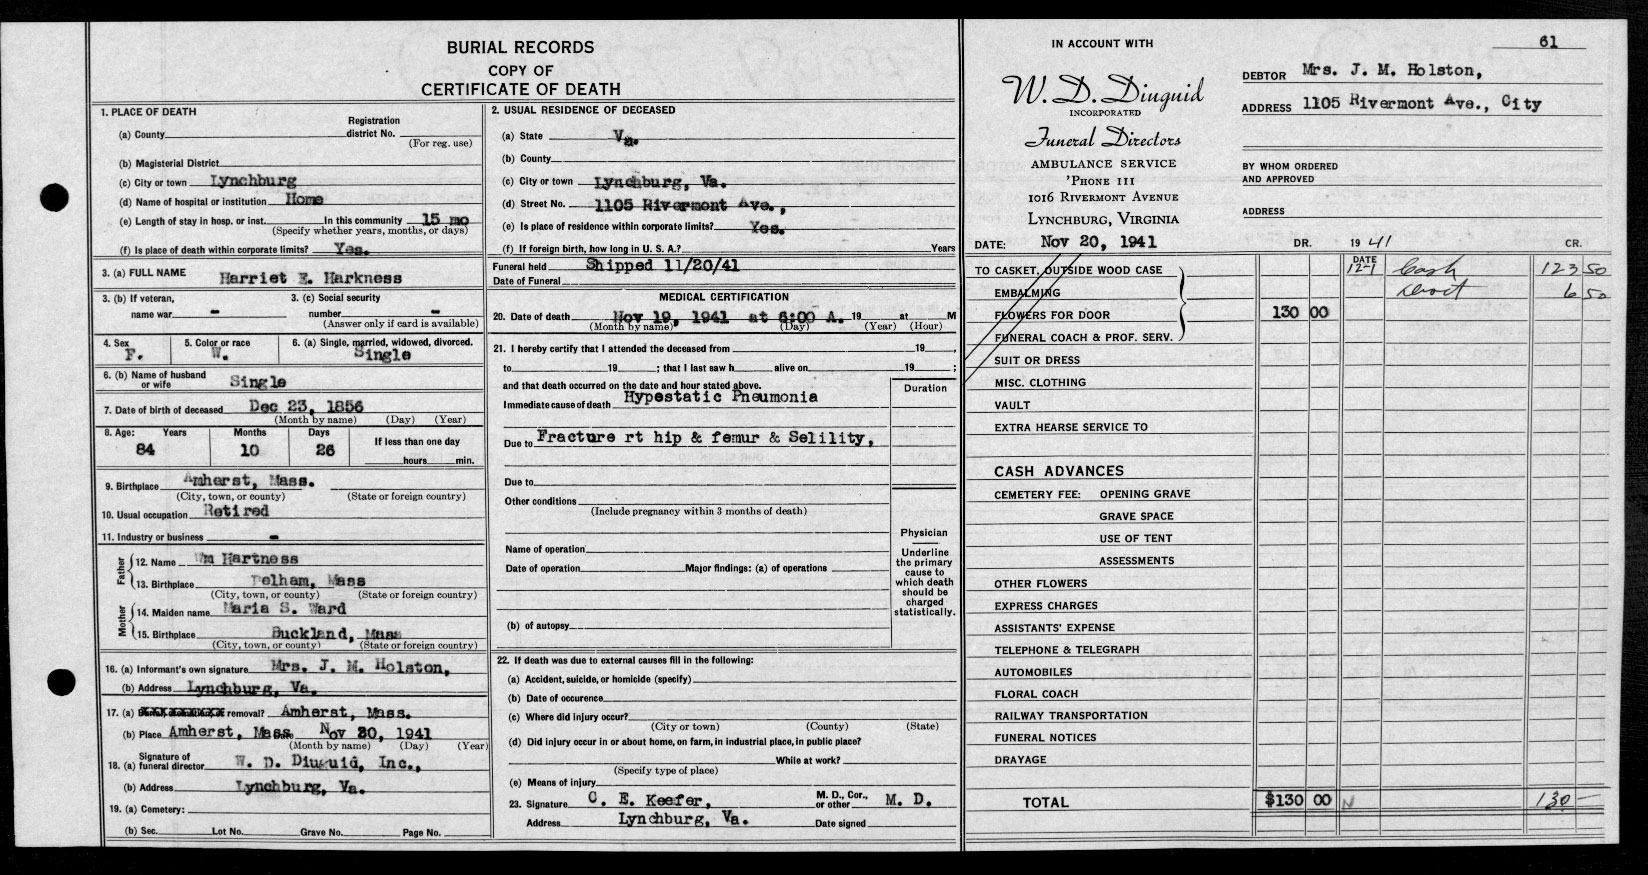 BURIAL RECORDS
COPY OF
CERTIFICATE OF DEATH
1. PLACE OF DEATH
Registration
(a) County district No.
(For reg. use)
(b) Magisterial District
(c) City or town Lynchburg
(d) Name of hospital or institution Home
(e) Length of stay in hosp. or inst. In this community 15 mo
(Specify whether years, months, or days)
(f) Is place of death within corporate limits? Yes.
3. (a) FULL NAME Harriet E. Harkness
3. (b) If veteran, 3. (c) Social security
name war - number -
(Answer only if card is available)
4. Sex 5. Color or race 6. (a) Single, married, widowed, divorced.
F. W. Single
6. (b) Name of husband
or wife Single
7. Date of birth of deceased Dec 23, 1856
(Month by name) (Day) (Year)
8. Age: Years Months Days If less than one day
84 10 26 hours min.
9. Birthplace Amherst, Mass.
(City, town, or county) (State or foreign country)
10. Usual occupation Retired
11. Industry or business -
Father
12. Name Wm Hartness
13. Birthplace Pelham, Mass
(City, town, or county) (State or foreign country)
Mother
14. Maiden name Maria S. Ward
15. Birthplace Buckland, Mass
(City, town, or county) (State or foreign country)
16. (a) Informant's own signature Mrs. J. M. Holston,
(b) Address Lynchburg, Va.
17. (a) removal? Amherst, Mass.
(b) Place Amherst, Mass Nov 20, 1941
(Month by name) (Day) (Year)
18. (a) Signature of funeral director W. D. Diuguid, Inc.,
(b) Address Lynchburg, Va.
19. (a) Cemetery:
(b) Sec. Lot No. Grave No. Page No.
2. USUAL RESIDENCE OF DECEASED
(a) State Va.
(b) County
(c) City or town Lynchburg, Va.
(d) Street No. 1105 Rivermont Ave.,
(e) Is place of residence within corporate limits? Yes.
(f) If foreign birth, how long in U. S. A.? Years
Funeral held Shipped 11/20/41
Date of Funeral
MEDICAL CERTIFICATION
20. Date of death Nov 19, 1941 at 6:00 A. 19 at M
(Month by name) (Day) (Year) (Hour)
21. I hereby certify that I attended the deceased from 19 ,
to 19 ; that I last saw h alive on 19 ;
and that death occurred on the date and hour stated above. Duration
Immediate cause of death Hypestatic Pneumonia
Due to Fracture rt hip & femur & Selility,
Due to
Other conditions
(Include pregnancy within 3 months of death)
Name of operation
Date of operation Major findings: (a) of operations
(b) of autopsy
Physician
Underline
the primary
cause to
which death
should be
charged
statistically.
22. If death was due to external causes fill in the following:
(a) Accident, suicide, or homicide (specify)
(b) Date of occurence
(c) Where did injury occur?
(City or town) (County) (State)
(d) Did injury occur in or about home, on farm, in industrial place, in public place?
While at work?
(Specify type of place)
(e) Means of injury
23. Signature C. E. Keefer, M. D., Cor., or other M. D.
Address Lynchburg, Va. Date signed
IN ACCOUNT WITH
W. D. Diuguid
INCORPORATED
Funeral Directors
AMBULANCE SERVICE
'PHONE 111
1016 RIVERMONT AVENUE
LYNCHBURG, VIRGINIA
61
DEBTOR Mrs. J. M. Holston,
ADDRESS 1105 Rivermont Ave., City
BY WHOM ORDERED
AND APPROVED
ADDRESS
DATE: Nov 20, 1941 DR. 1941 CR.
DATE
TO CASKET, OUTSIDE WOOD CASE 12-1 Cash 123 50
EMBALMING 6 50
FLOWERS FOR DOOR 130 00
FUNERAL COACH & PROF. SERV.
SUIT OR DRESS
MISC. CLOTHING
VAULT
EXTRA HEARSE SERVICE TO
CASH ADVANCES
CEMETERY FEE: OPENING GRAVE
GRAVE SPACE
USE OF TENT
ASSESSMENTS
OTHER FLOWERS
EXPRESS CHARGES
ASSISTANTS' EXPENSE
TELEPHONE & TELEGRAPH
AUTOMOBILES
FLORAL COACH
RAILWAY TRANSPORTATION
FUNERAL NOTICES
DRAYAGE
TOTAL $130 00 N 130 —